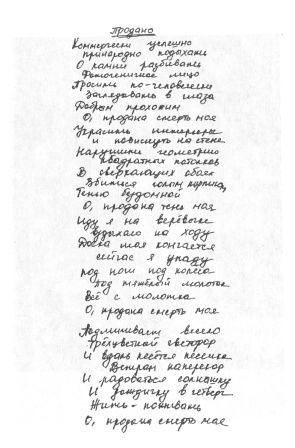 Продано
Коммерчески успешно
принародно подыхать
О камни разбивать
Фотогеничное лицо
Просить по-человечески
Заглядывать в глаза
Добрым прохожим
О, продана смерть моя
Украсить интерьеры
и повиснуть на стене
Нарушить геометрию
квадратных потолков
В сверкающих обоях
Биться голым кирпичом
Тенью бездомной
О, продана тень моя
Иду я на верёвочке
вздыхаю на ходу
Доска моя кончается
сейчас я упаду
под ноги под колёса
под тяжёлый молоток
Всё с молотка
О, продана смерть моя
Подмигивает весело
Трёхцветный светофор
И вдаль несётся песенка
Ветрам наперекор
И радоваться солнышку
И дождичку в четверг
Жить-поживать
О, продана смерть моя